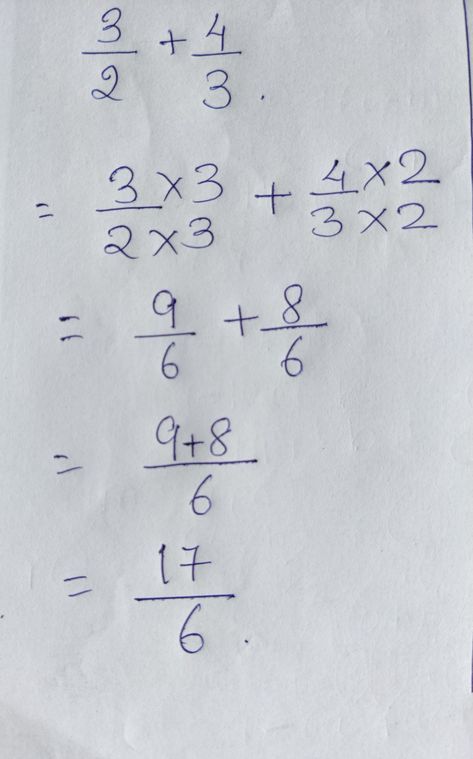 3/2 + 4/3.
= 3×3/2×3 + 4×2/3×2
= 9/6 + 8/6
= 9+8/6
= 17/6.